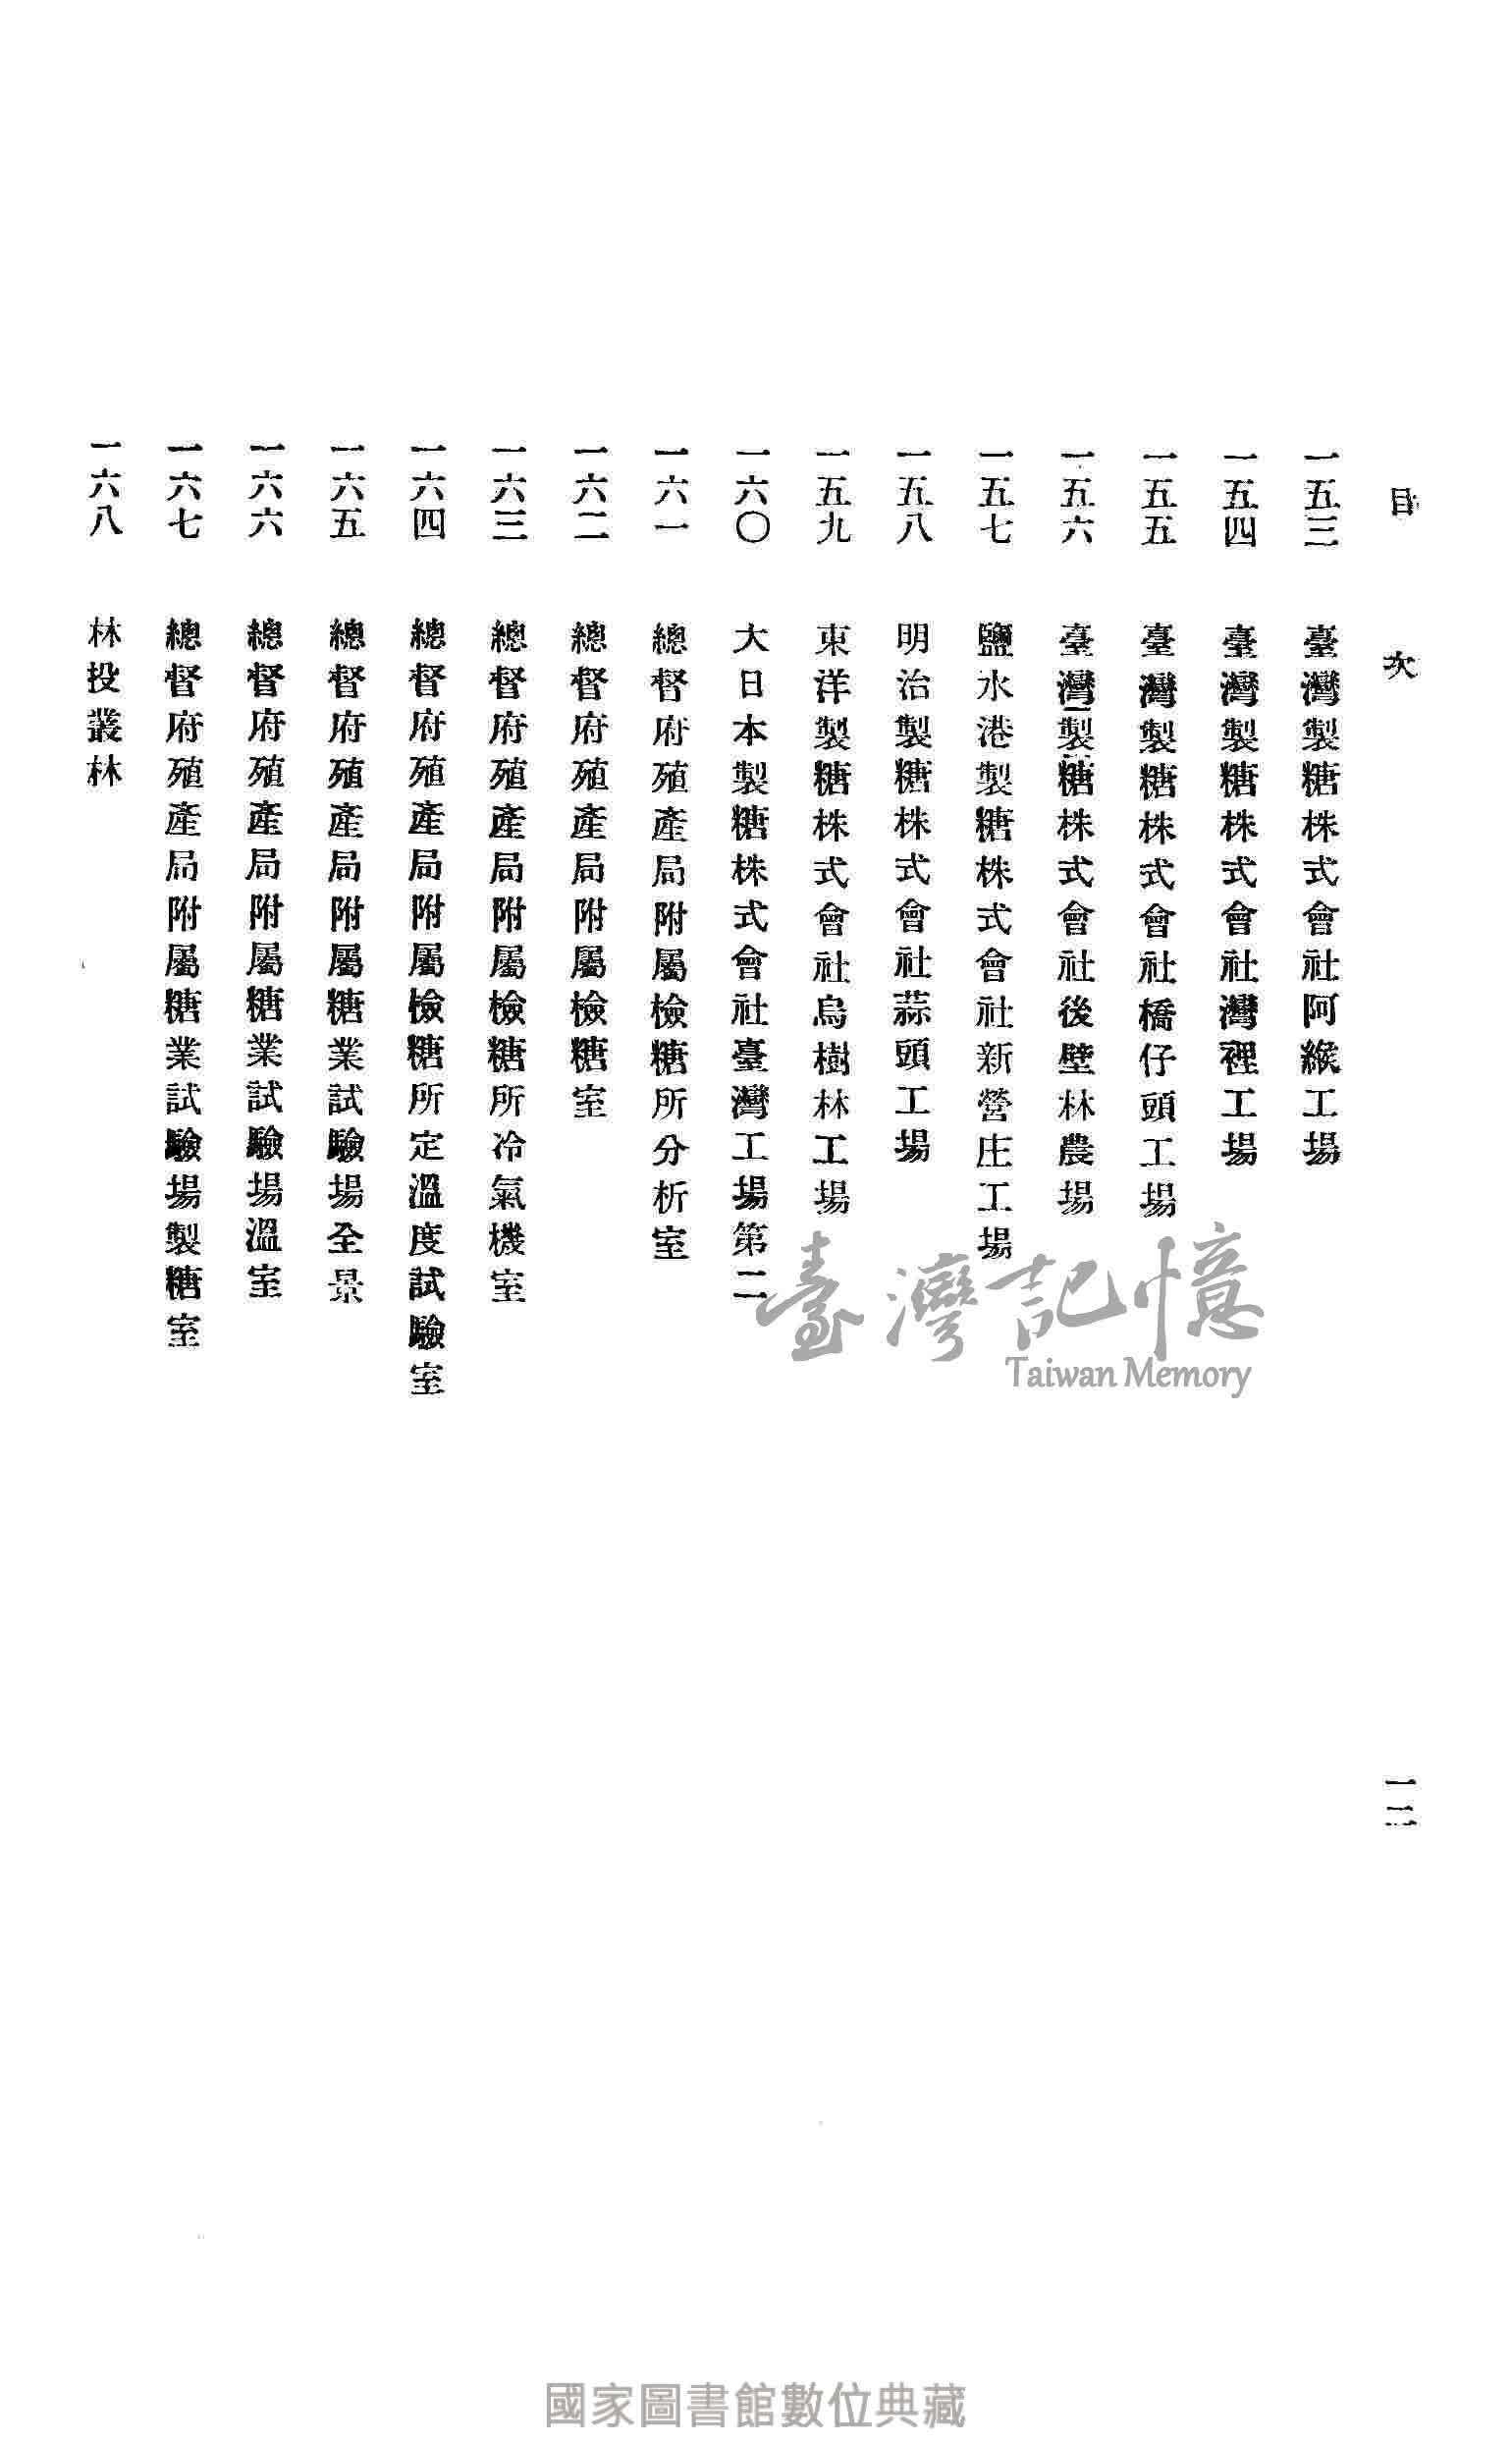 目次
一五三 臺灣製糖株式會社阿緱工場
一五四 臺灣製糖株式會社灣裡工場
一五五 臺灣製糖株式會社橋仔頭工場
一五六 臺灣製糖株式會社後壁林農場
一五七 鹽水港製糖株式會社新營庄工場
一五八 明治製糖株式會社蒜頭工場
一五九 東洋製糖株式會社烏樹林工場
一六〇 大日本製糖株式會社臺灣工場第二
一六一 總督府殖產局附屬檢糖所分析室
一六二 總督府殖產局附屬檢糖室
一六三 總督府殖產局附屬檢糖所冷氣機室
一六四 總督府殖產局附屬檢糖所定溫度試驗室
一六五 總督府殖產局附屬糖業試驗場全景
一六六 總督府殖產局附屬糖業試驗場溫室
一六七 總督府殖產局附屬糖業試驗場製糖室
一六八 林投叢林
臺灣記憶
Taiwan Memory
國家圖書館數位典藏